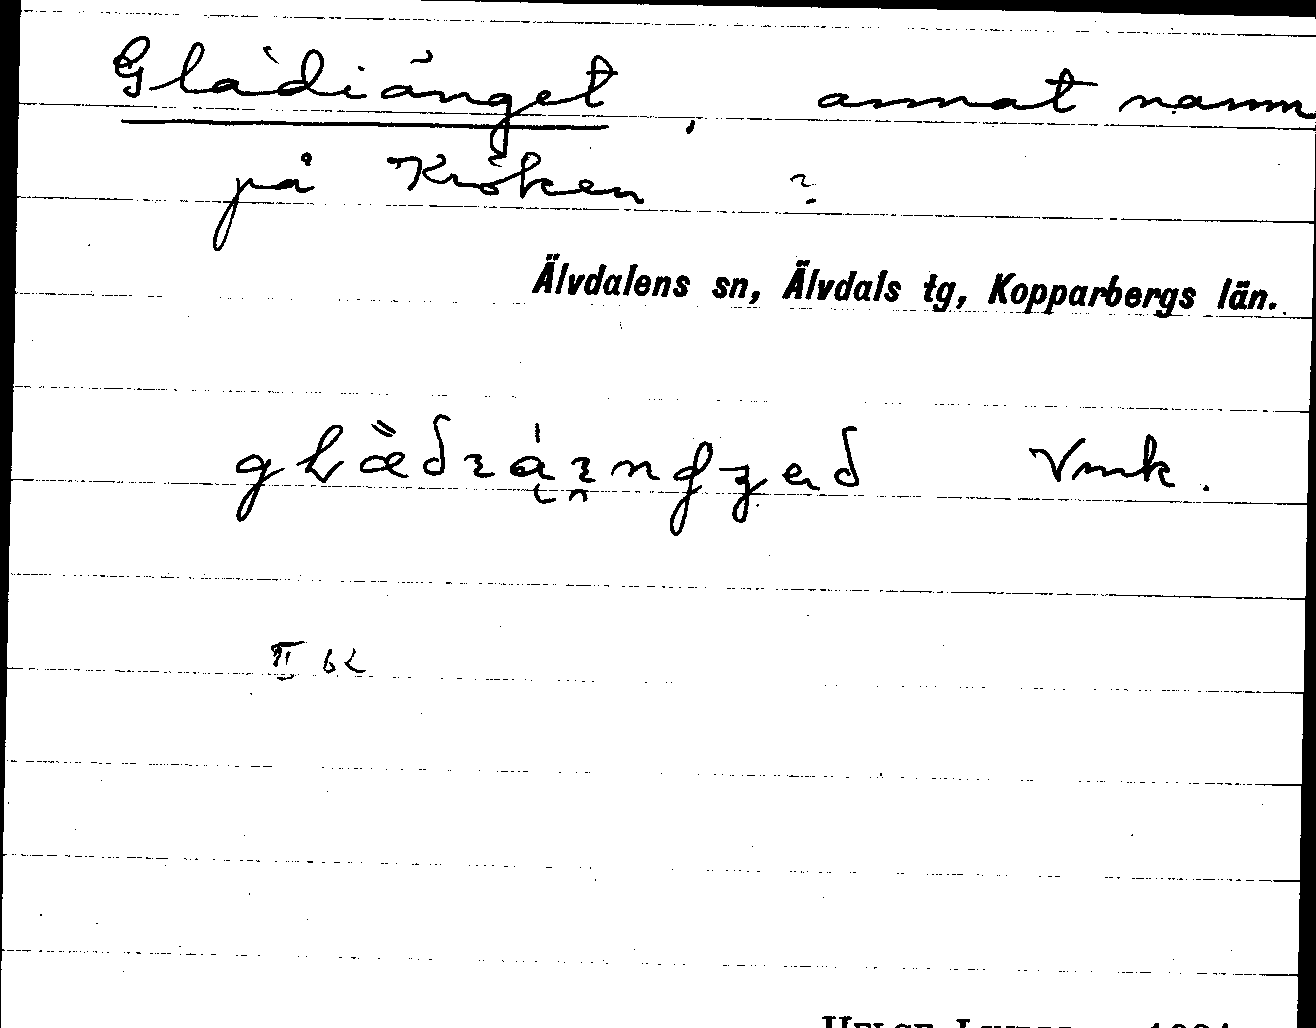 Gladiänget, annat namn
på Kröken ?
Älvdalens sn, Älvdals tg, Kopparbergs län.
Vmk.
II 62